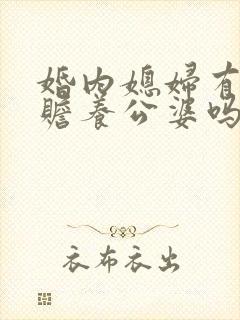 婚内媳妇有
赡养公婆吗
衣布衣出